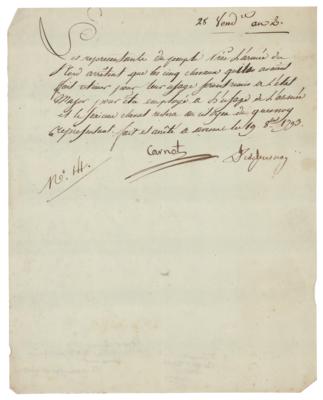 28 Vend.re an 2.
Les representants du peuple près l'armée du
Nord arrêtent que les cinq chevaux qu'ils avoient
fait retenir pour leur usage seront remis à l'état
Major pour être employés à l'usage de l'armée
et le sixieme cheval restera au citoyen du quesnoy
Representant, fait et arrêté à avesne le 19 8.bre 1793.
Carnot Duquesnoy
N.o 44.